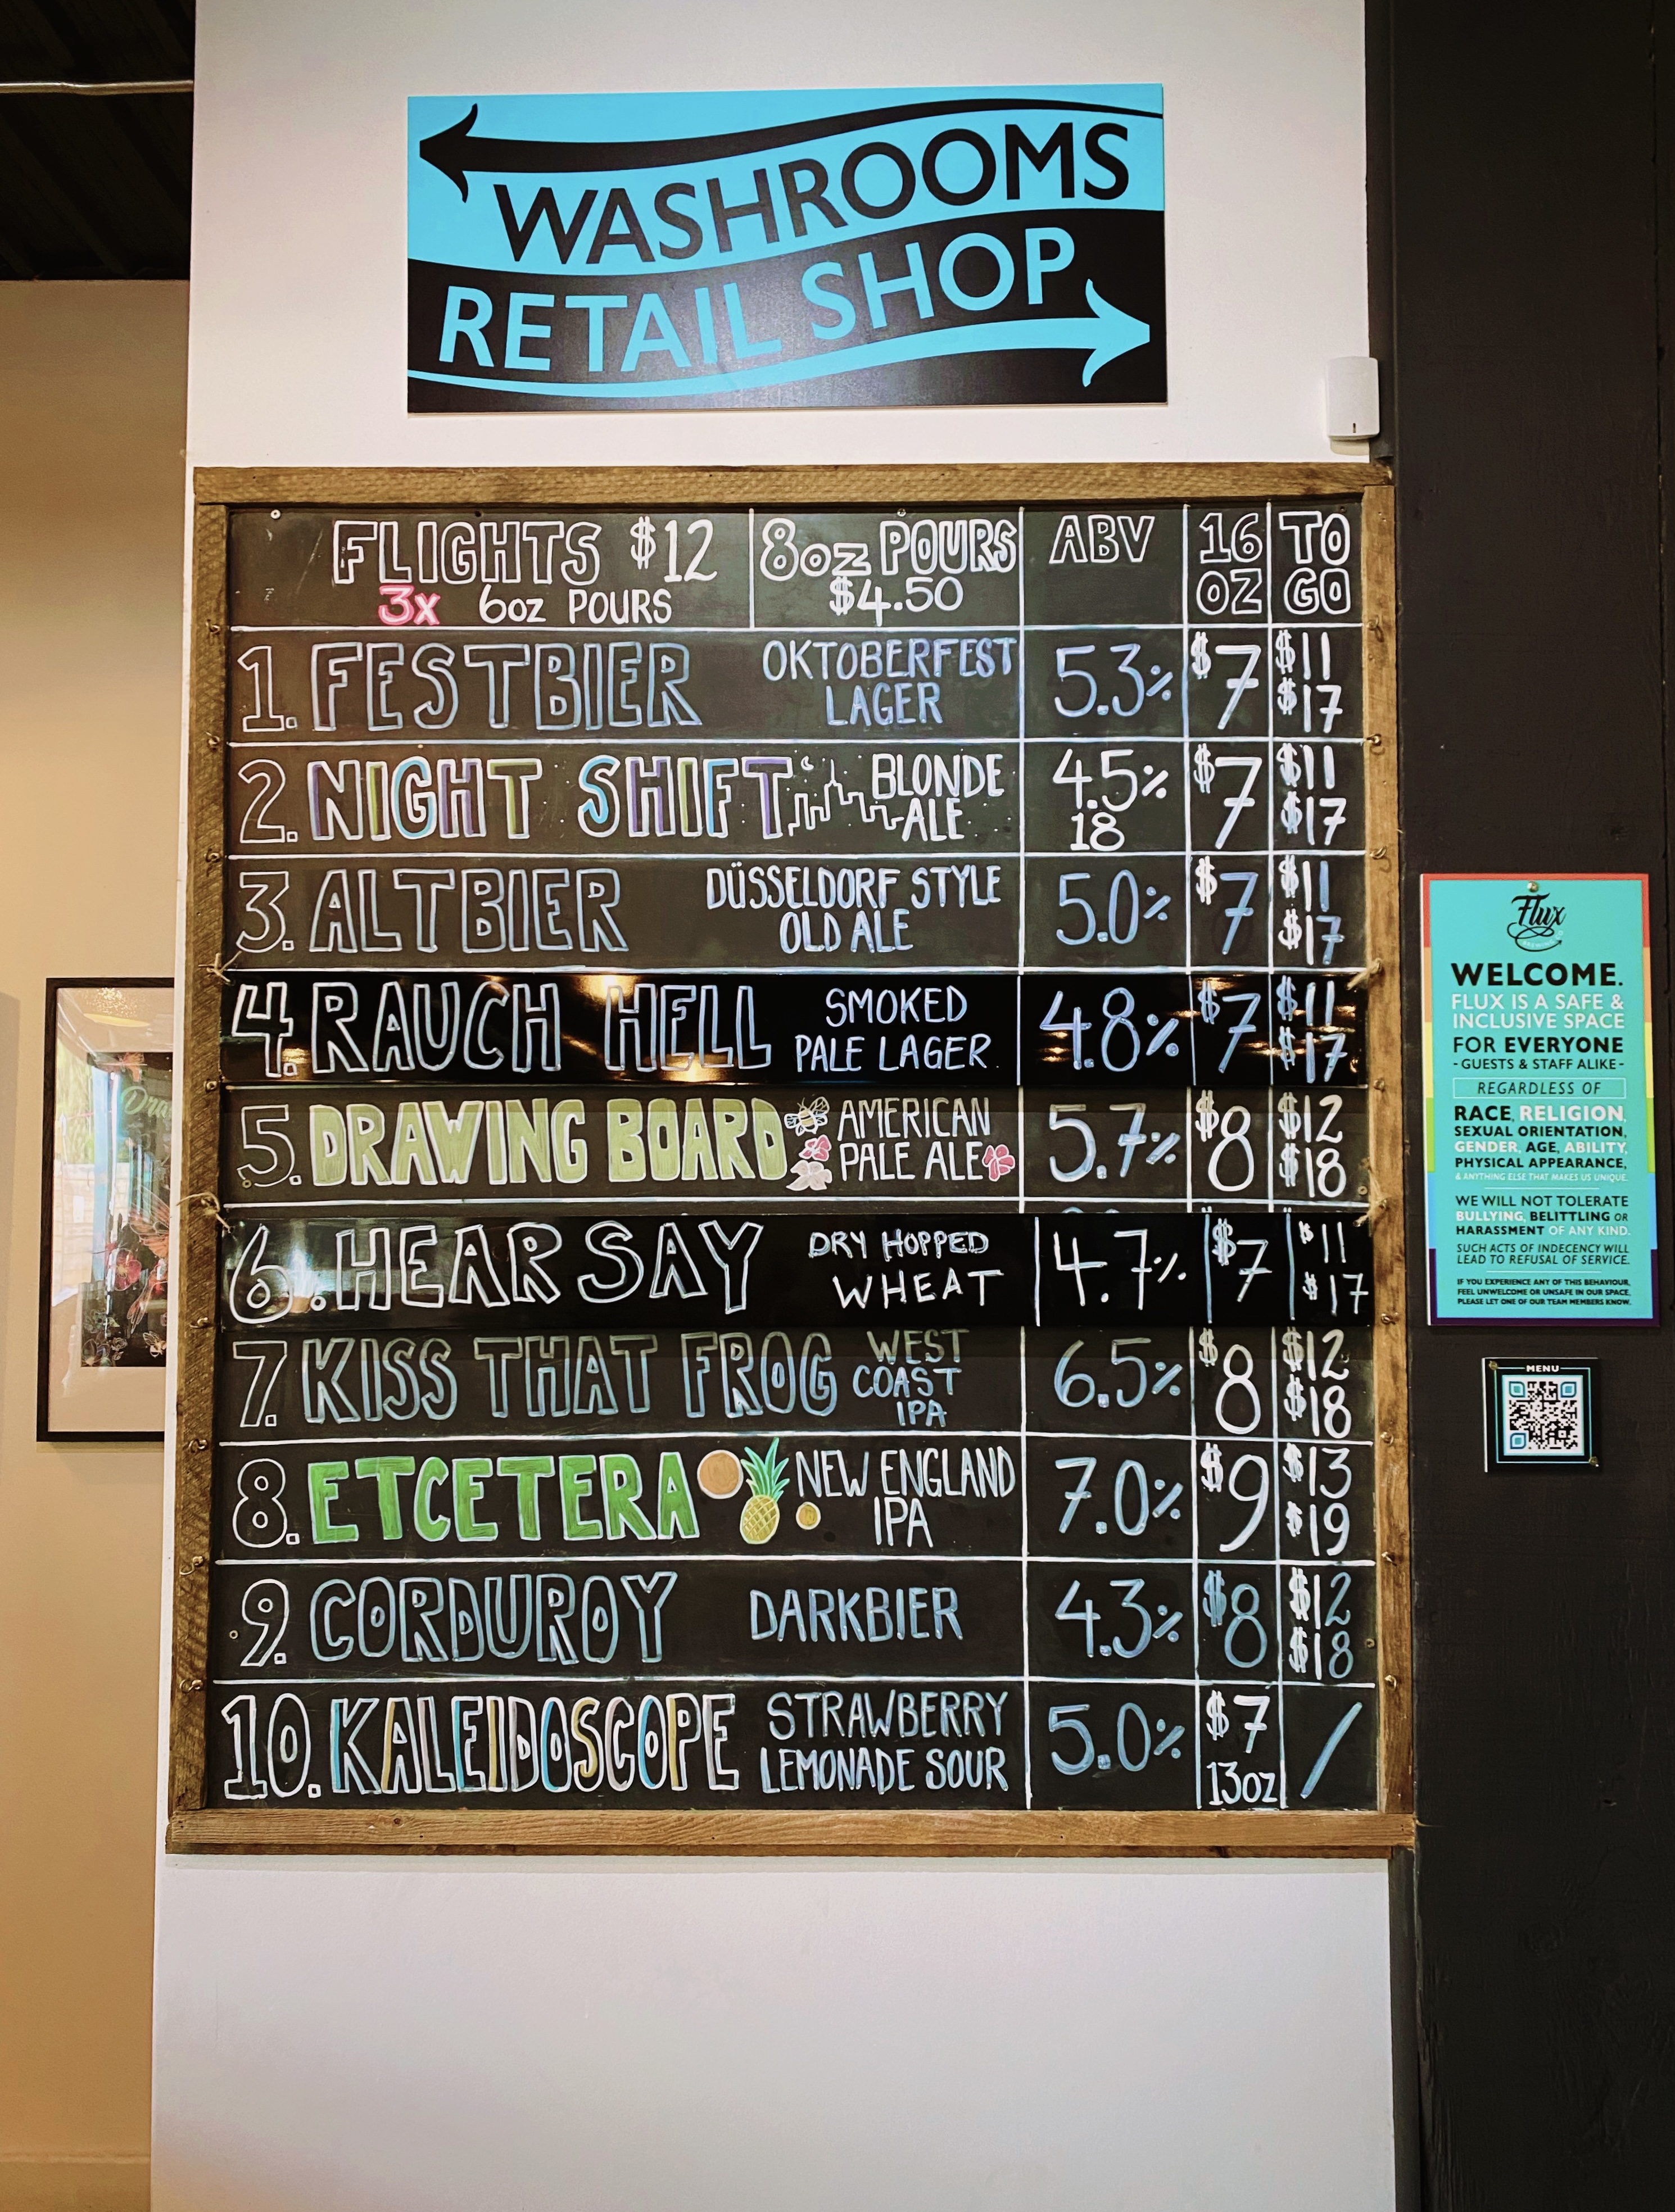 WASHROOMS
RETAIL SHOP
FLIGHTS $12
3x 6oz POURS
8oz POURS
$4.50
ABV
16
OZ
TO
GO
1. FESTBIER
OKTOBERFEST
LAGER
5.3%
$7
$11
$17
2. NIGHT SHIFT
BLONDE
ALE
4.5%
18
$7
$11
$17
3. ALTBIER
DÜSSELDORF STYLE
OLD ALE
5.0%
$7
$11
$17
4. RAUCH HELL
SMOKED
PALE LAGER
4.8%
$7
$11
$17
5. DRAWING BOARD
AMERICAN
PALE ALE
5.7%
$8
$12
$18
6. HEAR SAY
DRY HOPPED
WHEAT
4.7%
$7
$11
$17
7. KISS THAT FROG
WEST
COAST
IPA
6.5%
$8
$12
$18
8. ETCETERA
NEW ENGLAND
IPA
7.0%
$9
$13
$19
9. CORDUROY
DARKBIER
4.3%
$8
$12
$18
10. KALEIDOSCOPE
STRAWBERRY
LEMONADE SOUR
5.0%
$7
13oz
/
Flux
WELCOME.
FLUX IS A SAFE &
INCLUSIVE SPACE
FOR EVERYONE
- GUESTS & STAFF ALIKE -
REGARDLESS OF
RACE, RELIGION,
SEXUAL ORIENTATION,
GENDER, AGE, ABILITY,
PHYSICAL APPEARANCE,
& ANYTHING ELSE THAT MAKES US UNIQUE.
WE WILL NOT TOLERATE
BULLYING, BELITTLING OR
HARASSMENT OF ANY KIND.
SUCH ACTS OF INDECENCY WILL
LEAD TO REFUSAL OF SERVICE.
IF YOU EXPERIENCE ANY OF THIS BEHAVIOUR,
FEEL UNWELCOME OR UNSAFE IN OUR SPACE,
PLEASE LET ONE OF OUR TEAM MEMBERS KNOW.
MENU